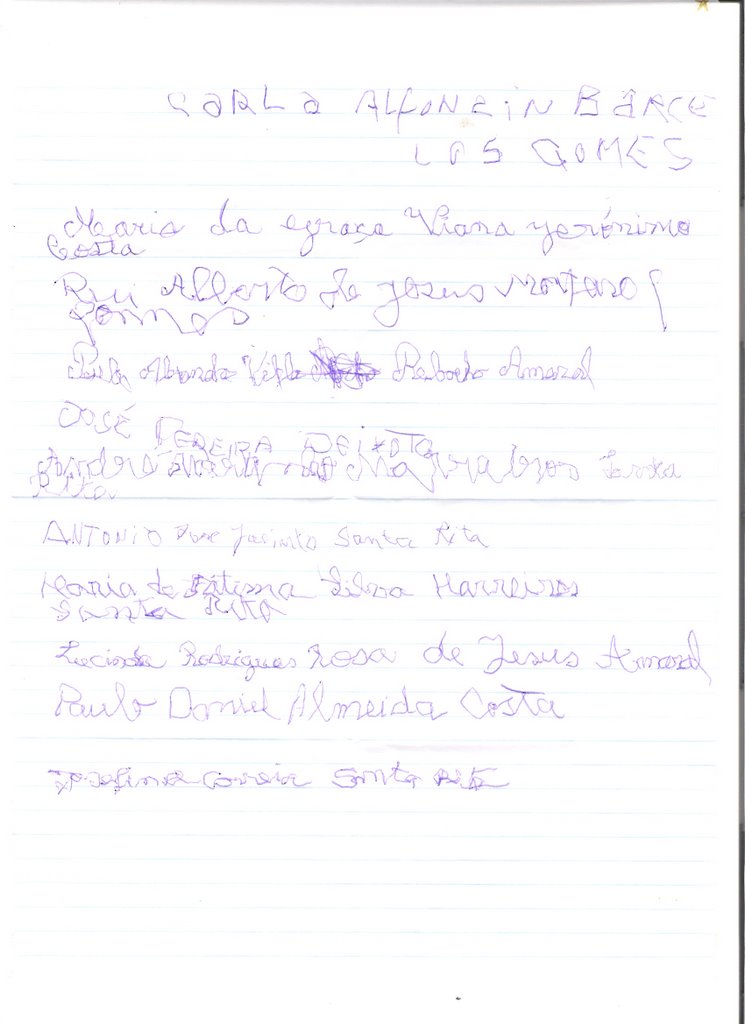 CARLA ALFONCIN BARCE
LOS GOMES
Maria da Graça Viana Jerónimo
Costa
Rui Alberto de Jesus
Paulo Amaral
JOSÉ PEREIRA PEIXOTO
Santa
Rita
ANTONIO José Jacinto Santa Rita
Maria de Fátima Silva Marreiros
Santa Rita
Lucinda Rodrigues Rosa de Jesus Amaral
Paulo Daniel Almeida Costa
Josefina Correia Santa Rita